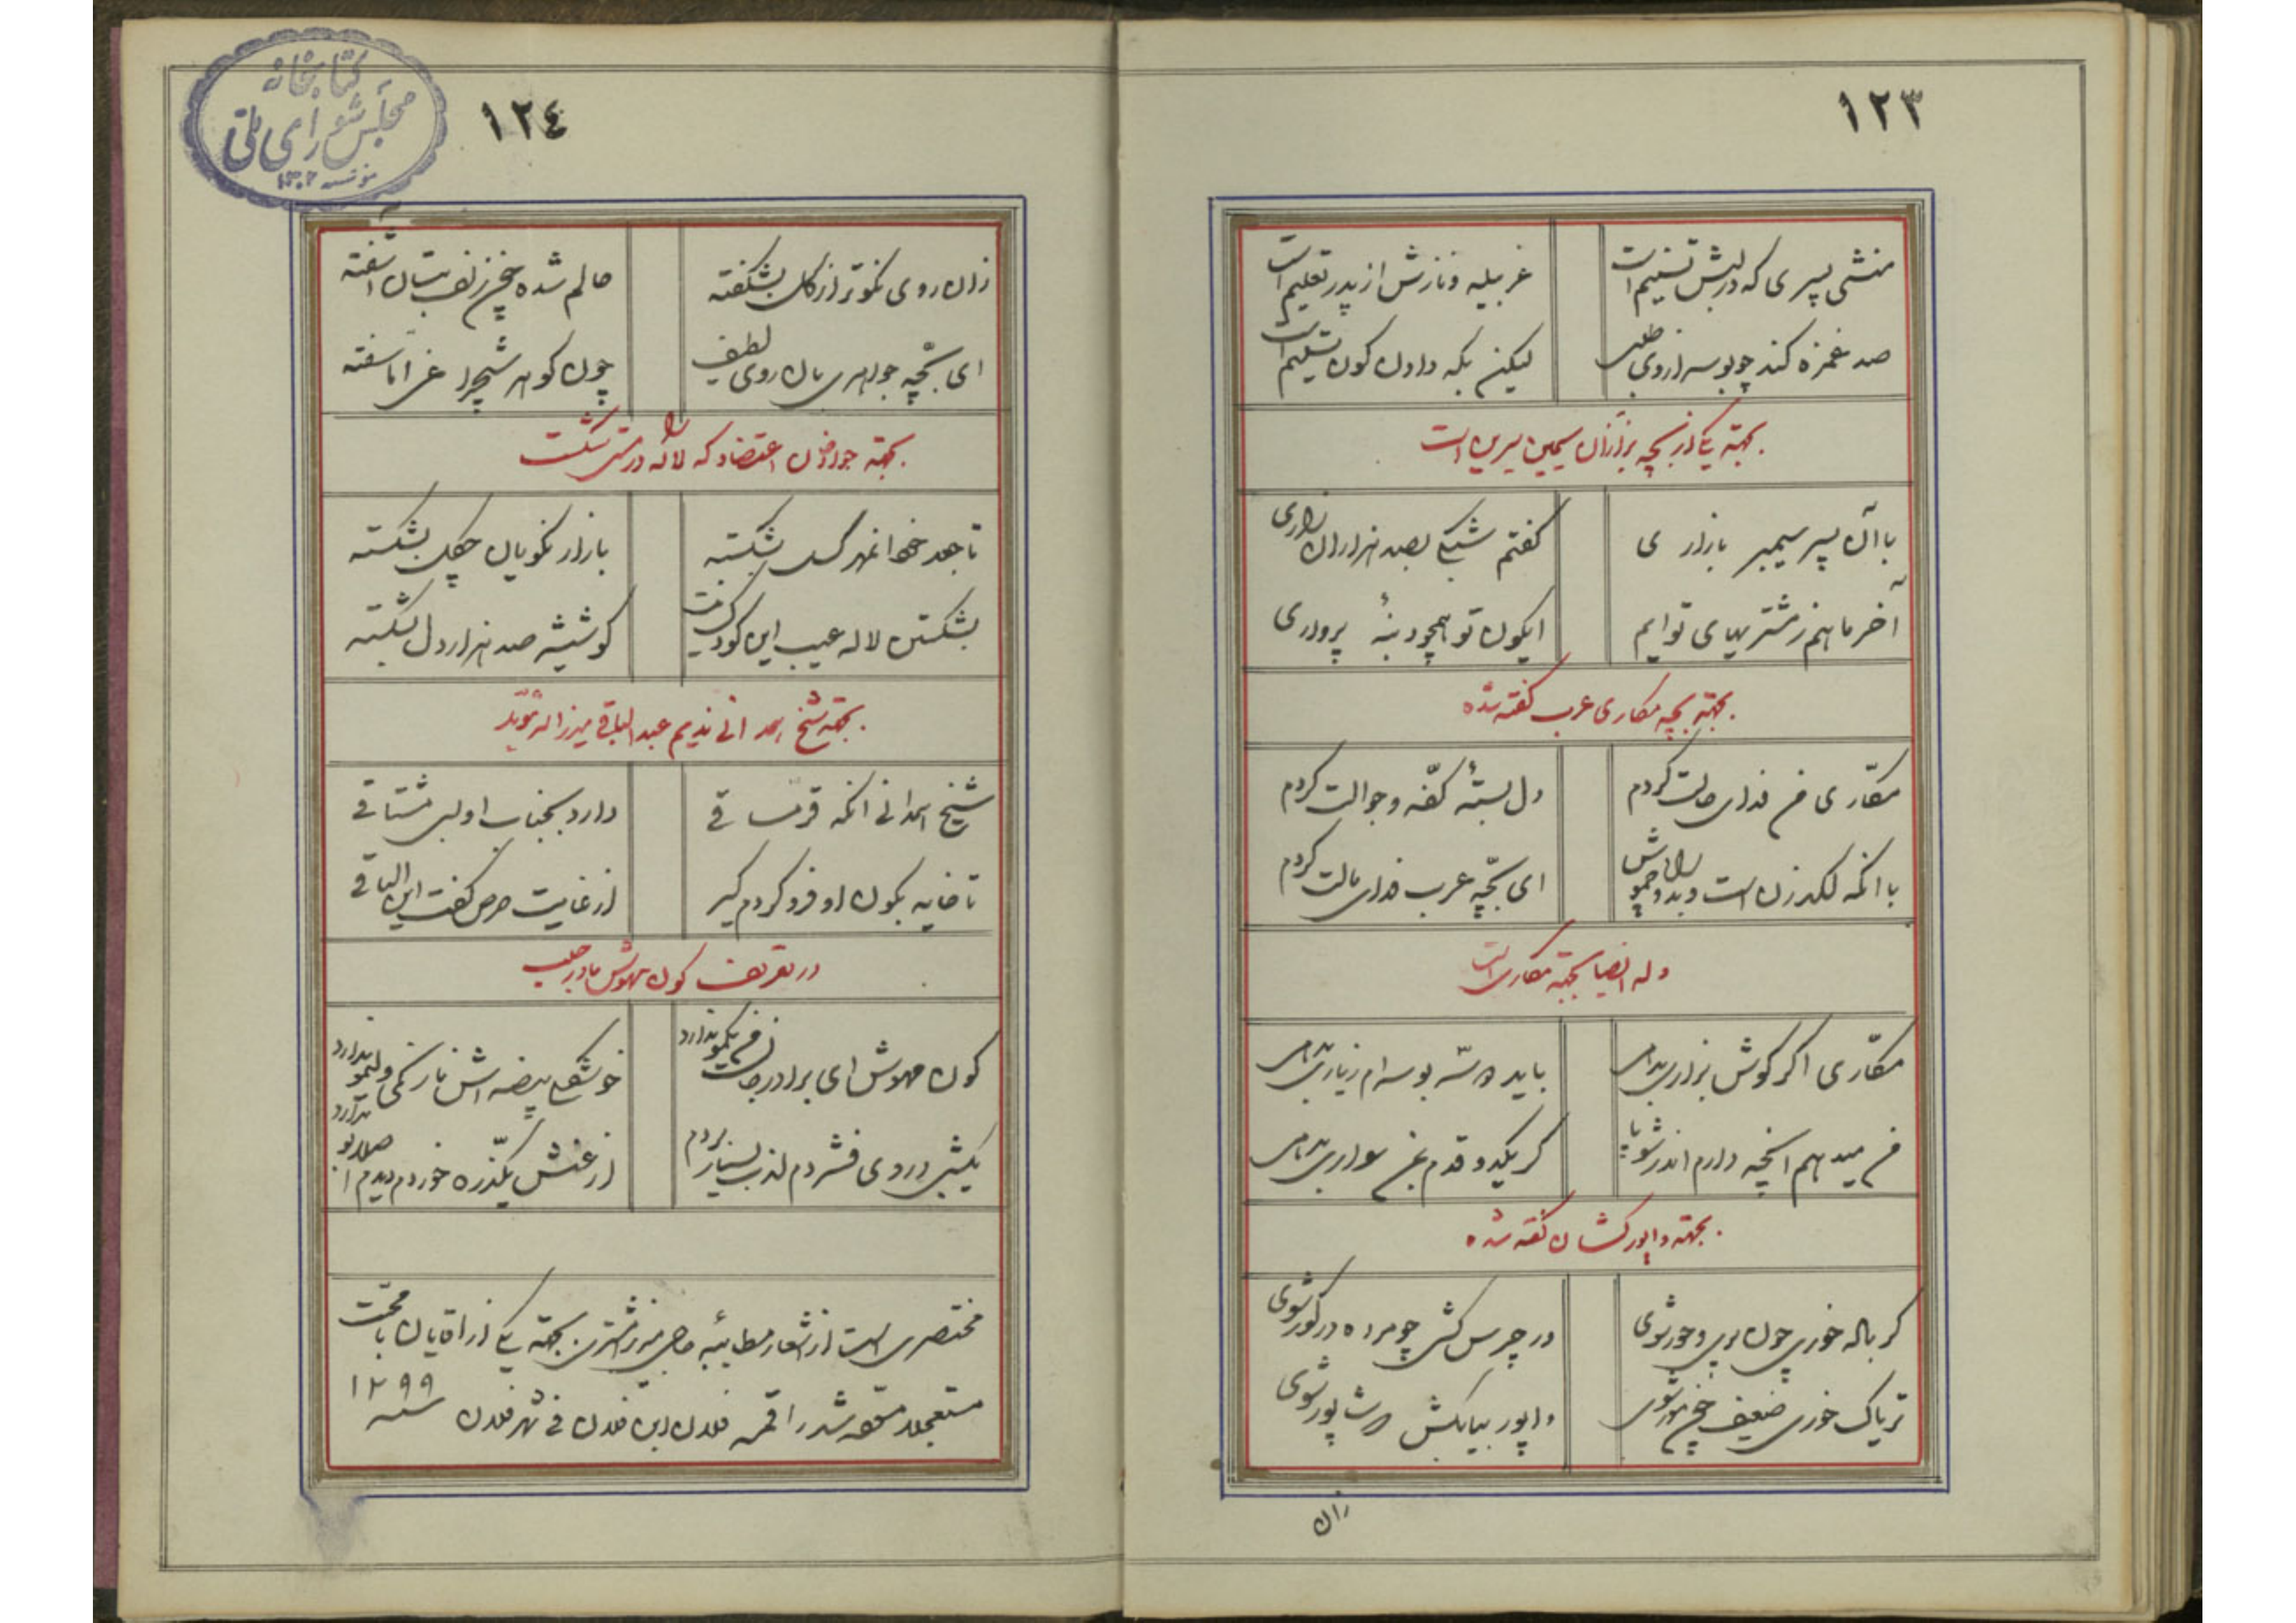 ۱۲۳
منشی پسری که در لبش تسنیم است
غربیله و نازش از پدر تعلیم است
صد غمزه کند چو بوسه از وی طلبی
لیکن بگه دادن کون تسلیم است
بجهته یکی از بچه بزازان سیمین سرین است
با آن پسر سیمبر بازاری
گفتم شبکی بصد هزاران زاری
آخر ما هم ز مشتریهای توایم
ایکون تو همچو دنبهٔ پرواری
بجهته بچه مکاری عرب گفته شده
مکّاری من فدای حالت کردم
دل بستهٔ کفّه و جوالت کردم
با آنکه لگدزن است و بدو چموش
ای بچّه عرب فدای مالت کردم
وله ایضا بجهته مکاری است
مکّاری اگر کوش بزاری بدهی
باید دو سّه بوسه ام زیاری بدهی
من میدهم آنچه دارم اندر شو پا
کر یکدو قدم بمن سواری بدهی
بجهته وافور کشان گفته شده
کر باله خوری چون
در چرس کشی چو مرده در کور شوی
تریاک خوری ضعیف
وافور بیا بکش
زان
۱۲٤
کتابخانه
مجلس شورای ملی
مؤسسه ۱۳۰۲
زان روی نکوتر از کل بشکفته
حالم شده چون زلف بتان آشفته
ای بچّه جواهری بان روی لطیف
چون کوهر شبچراغ امّا سفته
بجهته جوانان اعتضاد که لاله در دستش شکست
تا جعد خم اندر کسل بشکسته
بازار نکویان چکل بشکسته
بشکستن لاله عیب این کودک نیست
کو شیشه صد هزار دل بشکسته
بجهته شیخ همدانی ندیم عبدالباقی میرزا
شیخ همدانی آنکه قرمساقی
دارد بجناب او بسی مشتاقی
تا خایه بکون او فرو کردم کیر
از غایت حرص گفت این الباقی
در تعریف کون مهوش مادر جلب
کون مهوش ای برادر
خوشکل بیضه اش نازکی
یکشبی در وی فشردم لذت بسیار بردم
از عنش یکذره خوردم دیدم
مختصری است از اشعار مطائبه حاجی میرزا بجهته یکی از آقایان با محبّت
مستعجلا شد راقمه فلان ابن فلان فی شهر فلان سنه ۱۲۹۹